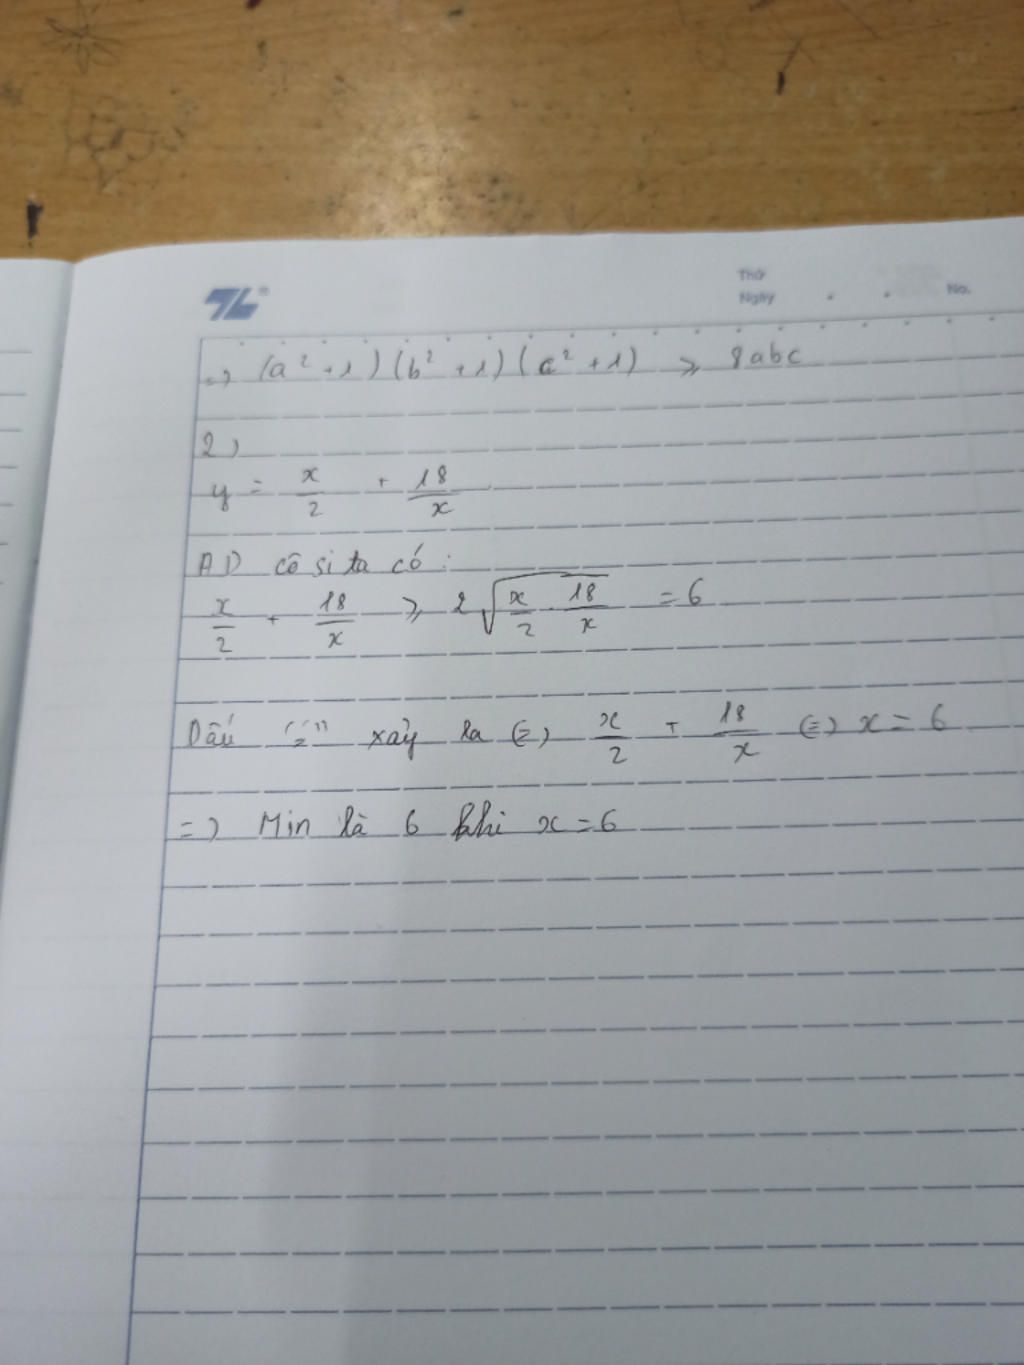 Thứ
Ngày . . No.
=> (a² + 1)(b² + 1)(c² + 1) ⩾ 8abc
2)
y = x/2 + 18/x
AD cô si ta có :
x/2 + 18/x ⩾ 2√(x/2 . 18/x) = 6
Dấu "=" xảy ra (=) x/2 + 18/x (=) x = 6
=) Min là 6 khi x = 6